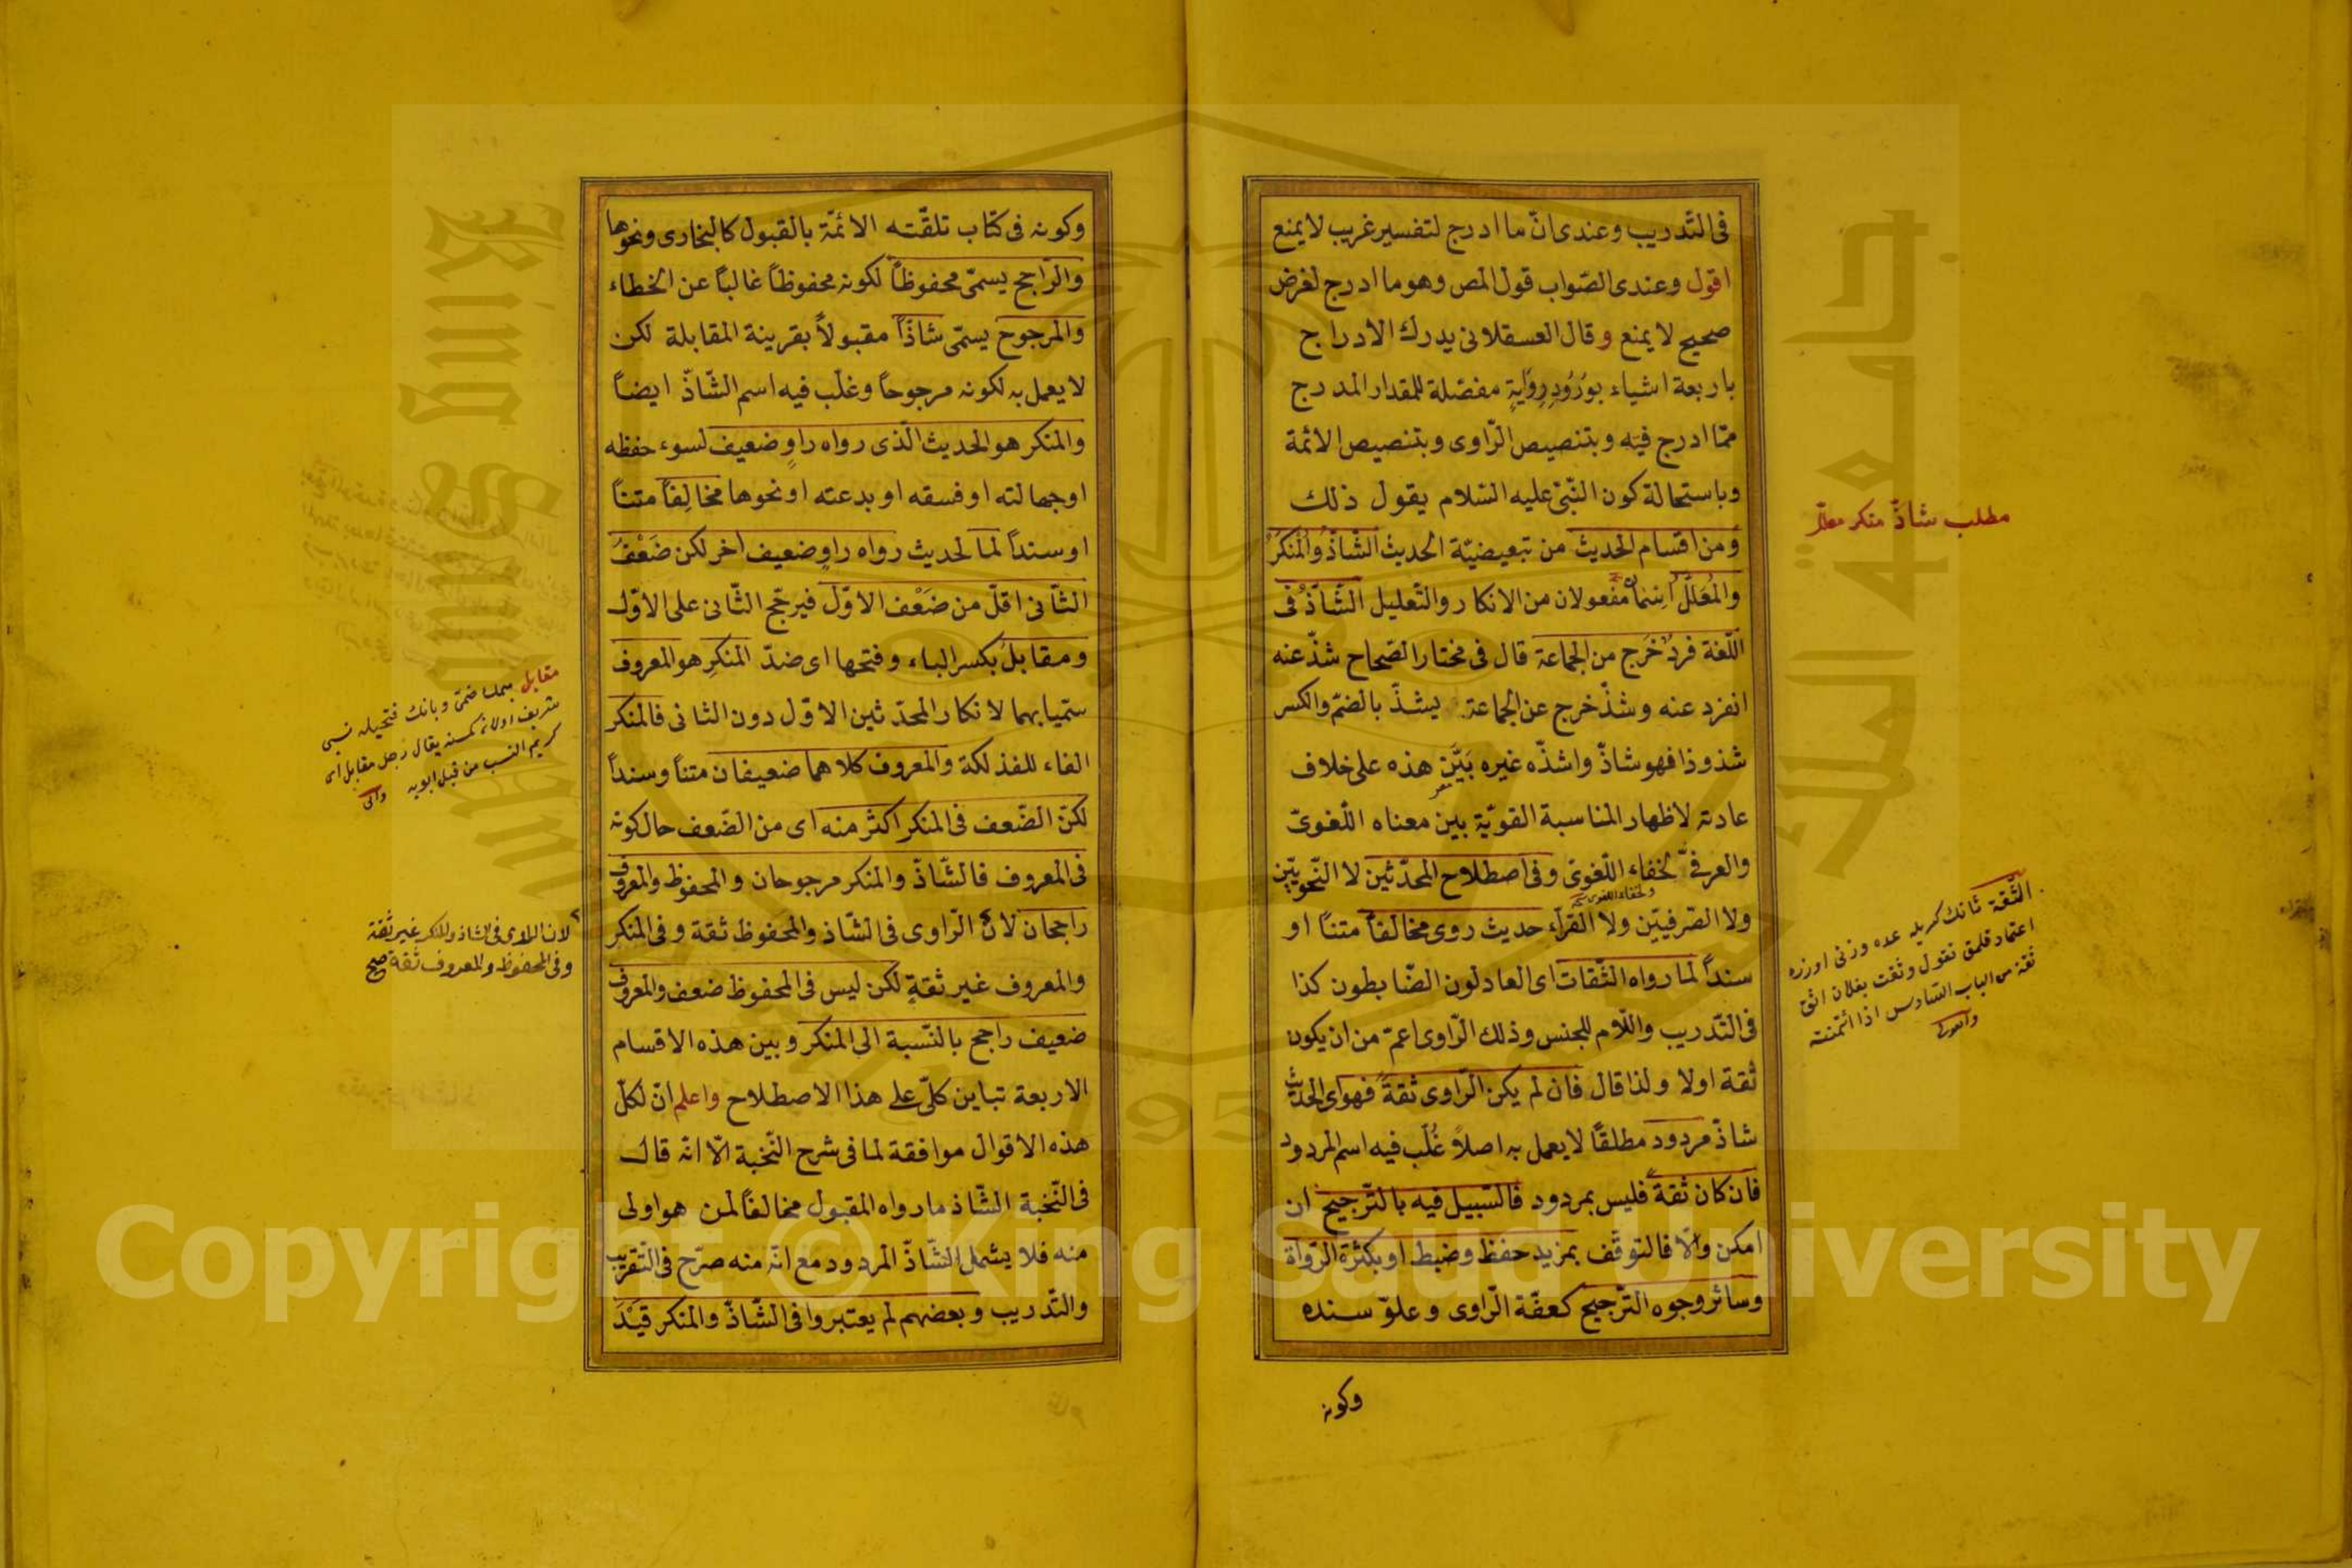 فى التّدريب وعندى انّ ما ادرج لتفسير غريب لا يمنع
اقول وعندى الصّواب قول المص وهو ما ادرج لغرض
صحيح لا يمنع وقال العسقلانى يدرك الادراج
باربعة اشياء بوُرُودِ رِوَايةٍ مفصّلة للمقدار المدرج
ممّا ادرج فيه وبتنصيص الرّاوى وبتنصيص الائمّة
وباستحالة كون النّبىّ عليه السّلام يقول ذلك
ومن اقسام الحديث من تبعيضيّة الحديث الشّاذُّ والمُنكَرُ
والمُعَلَّلُ مفعولان من الانكار والتّعليل الشّاذّ فى
اللّغة فردٌ خَرَج من الجماعة قال فى مختار الصّحاح شذّ عنه
انفرد عنه وشذّ خرج عن الجماعة يشذّ بالضّم والكسر
شذوذا فهو شاذّ واشذّه غيره بَيَّن هذه على خلاف
عادته لاظهار المناسبة القويّة بين معناه اللّغوىّ
والعرفىّ لخفاء اللّغوى وفى اصطلاح المحدّثين لا النّحويّين
ولا الصّرفيّين ولا القرّاء حديث روى مخالفاً متناً او
سنداً لما رواه الثّقات اى العادلون الضّابطون كذا
فى التّدريب واللّام للجنس وذلك الرّاوى اعمّ من ان يكون
ثقة اولا ولذا قال فان لم يكن الرّاوى ثقةً فهو اى الحديث
شاذّ مردود مطلقًا لا يعمل به اصلاً غُلّب فيه اسم المردود
فان كان ثقةً فليس بمردود فالسّبيل فيه بالتّرجيح ان
امكن والّا فالتوقّف بمزيد حفظ وضبط او بكثرة الرّواة
وسائر وجوه التّرجيح كعفّة الرّاوى وعلوّ سنده
وكونه
مطلب شاذّ منكر معلّل
وكونه فى كتاب تلقّته الائمّة بالقبول كالبخارى ونحوها
والرّاجح يسمّى محفوظاً لكونه محفوظاً غالباً عن الخطاء
والمرجوح يسمّى شاذّاً مقبولاً بقرينة المقابلة لكن
لا يعمل به لكونه مرجوحاً وغلّب فيه اسم الشّاذّ ايضاً
والمنكر هو الحديث الّذى رواه راوٍ ضعيف لسوء حفظه
او جهالته او فسقه او بدعته او نحوها مخالِفاً متناً
او سنداً لما لحديث رواه راوٍ ضعيف اخر لكن ضَعْفُ
الثّانى اقلّ من ضَعْف الاوّل فيرجّح الثّانى على الاوّل
ومقابلُ بكسر الباء وفتحها اى ضدّ المنكرِ هو المعروف
سمّيا بهما لانكار المحدّثين الاوّل دون الثانى فالمنكر
الفاء للفذلكة والمعروف كلاهما ضعيفان متناً وسنداً
لكنّ الضّعف فى المنكر اكثر منه اى من الضّعف حال كونه
فى المعروف فالشّاذّ والمنكر مرجوحان والمحفوظ والمعروف
راجحان لانّ الرّاوى فى الشّاذ والمحفوظ ثقة وفى المنكر
والمعروف غير ثقةٍ لكن ليس فى المحفوظ ضعف والمعروف
ضعيف راجح بالنّسبة الى المنكر وبين هذه الاقسام
الاربعة تباين كلّى على هذا الاصطلاح واعلم انّ لكلّ
هذه الاقوال موافقة لما فى شرح النّخبة الّا انّه قال
فى النّخبة الشّاذ ما رواه المقبول مخالفاً لمن هو اولى
منه فلا يشمل الشّاذّ المردود مع انّه منه صرّح فى التّقريب
والتّدريب وبعضهم لم يعتبروا فى الشّاذّ والمنكر قَيْدَ
لان الراوى فى الشاذ والمنكر غير ثقة
وفى المحفوظ والمعروف ثقة صح
يقال رجل مقابل اى
كريم النسب من قبل ابويه
Copyright © King Saud University